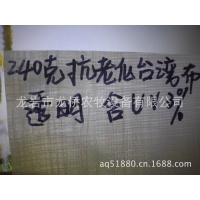 240克抗老化台湾布
龙岩市龙桥农牧设备有限公司
透明 含UV3%
aq51880.cn.1688.com